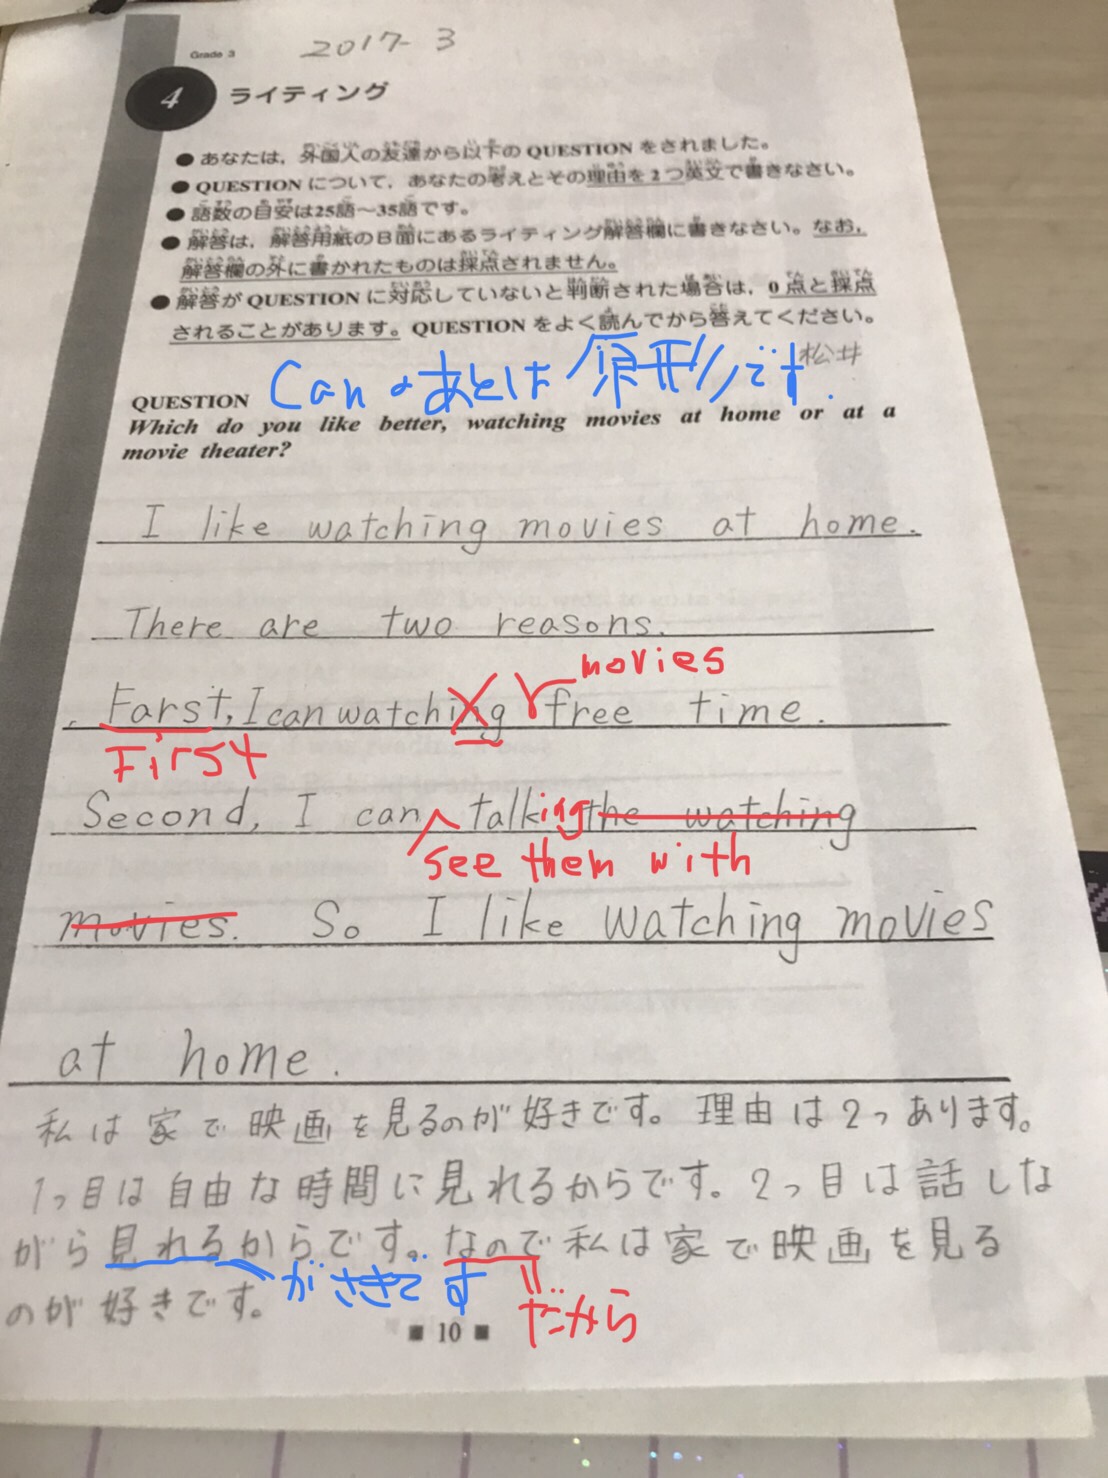 Grade 3
2017-3
4 ライティング
● あなたは，外国人の友達から以下のQUESTIONをされました。
● QUESTIONについて，あなたの考えとその理由を2つ英文で書きなさい。
● 語数の目安は25語～35語です。
● 解答は，解答用紙のB面にあるライティング解答欄に書きなさい。なお，
解答欄の外に書かれたものは採点されません。
● 解答がQUESTIONに対応していないと判断された場合は，0点と採点
されることがあります。QUESTIONをよく読んでから答えてください。
松井
Canのあとは 原形です.
QUESTION
Which do you like better, watching movies at home or at a
movie theater?
I like watching movies at home.
There are two reasons.
movies
Farst, I can watching free time.
First
Second, I can talking the watching
see them with
movies. So I like watching movies
at home.
私は家で映画を見るのが好きです。理由は2つあります。
1つ目は自由な時間に見れるからです。2つ目は話しな
がら見れるからです。なので私は家で映画を見る
だから
のが好きです。
■ 10 ■